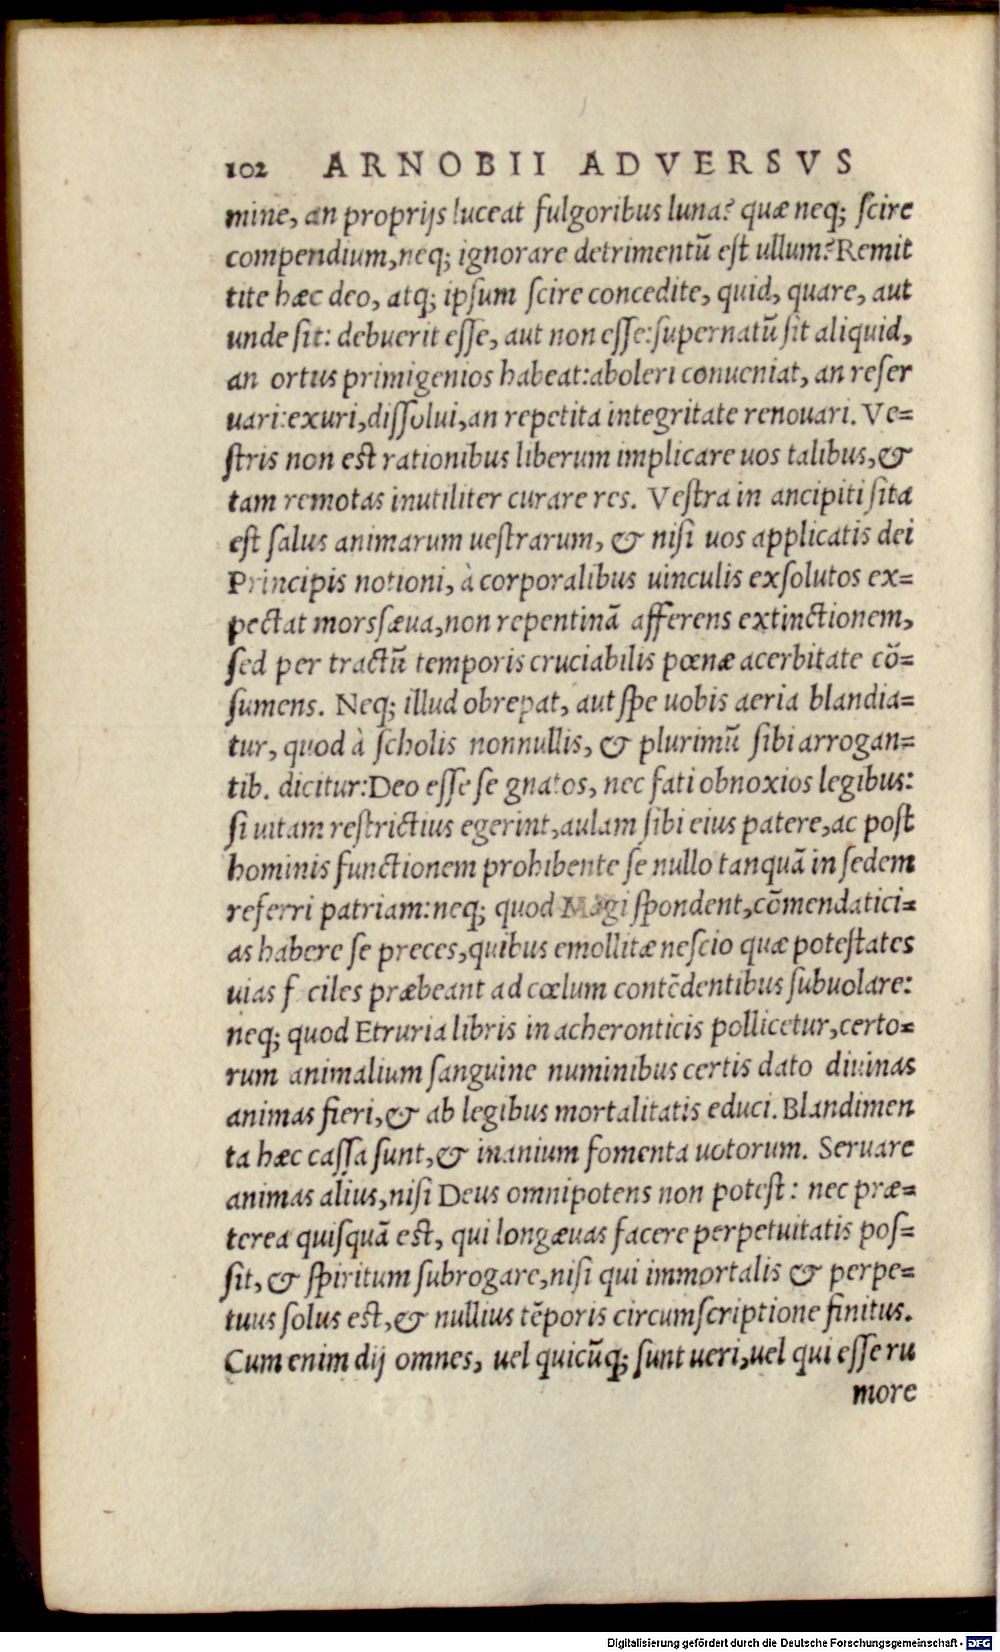 102 ARNOBII ADVERSVS
mine, an proprijs luceat fulgoribus luna? quæ neq; scire
compendium, neq; ignorare detrimentū est ullum? Remit
tite hæc deo, atq; ipsum scire concedite, quid, quare, aut
unde sit: debuerit esse, aut non esse: supernatū sit aliquid,
an ortus primigenios habeat: aboleri conueniat, an reser
uari: exuri, dissolui, an repetita integritate renouari. Ve=
stris non est rationibus liberum implicare uos talibus, &
tam remotas inutiliter curare res. Vestra in ancipiti sita
est salus animarum uestrarum, & nisi uos applicatis dei
Principis notioni, à corporalibus uinculis exsolutos ex=
pectat mors sæua, non repentinā afferens extinctionem,
sed per tractū temporis cruciabilis pœnæ acerbitate cō=
sumens. Neq; illud obrepat, aut spe uobis aeria blandia=
tur, quod à scholis nonnullis, & plurimū sibi arrogan=
tib. dicitur: Deo esse se gnatos, nec fati obnoxios legibus:
si uitam restrictius egerint, aulam sibi eius patere, ac post
hominis functionem prohibente se nullo tanquā in sedem
referri patriam: neq; quod Magi spondent, cōmendatici=
as habere se preces, quibus emollitæ nescio quæ potestates
uias f ciles præbeant ad cœlum contēdentibus subuolare:
neq; quod Etruria libris in acheronticis pollicetur, certo=
rum animalium sanguine numinibus certis dato diuinas
animas fieri, & ab legibus mortalitatis educi. Blandimen
ta hæc cassa sunt, & inanium fomenta uotorum. Seruare
animas alius, nisi Deus omnipotens non potest: nec præ=
terea quisquā est, qui longæuas facere perpetuitatis pos=
sit, & spiritum subrogare, nisi qui immortalis & perpe=
tuus solus est, & nullius tēporis circumscriptione finitus.
Cum enim dij omnes, uel quicūq; sunt ueri, uel qui esse ru
more
Digitalisierung gefördert durch die Deutsche Forschungsgemeinschaft - DFG